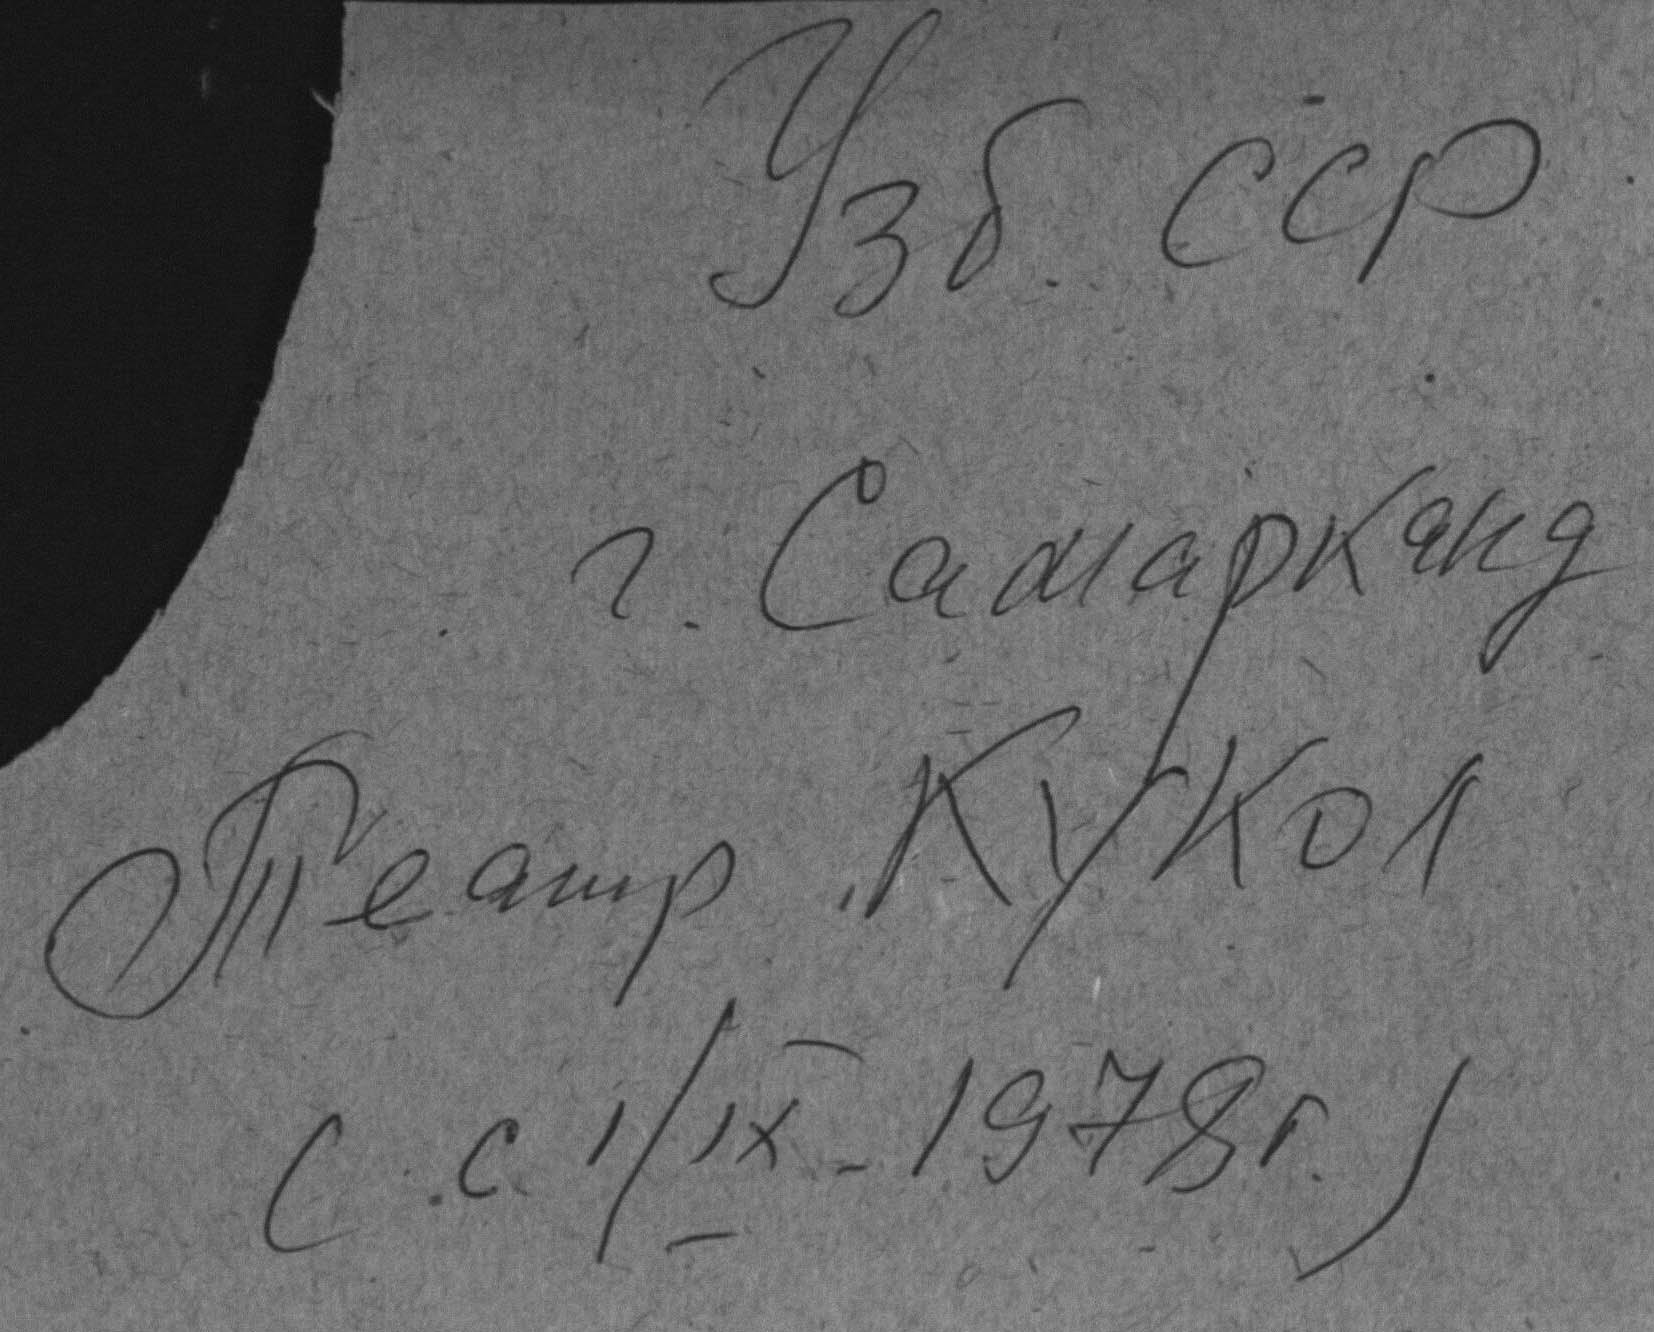 Узб. ССР
г. Самарканд
Театр Кукол
(с 1/IX - 1978г.)